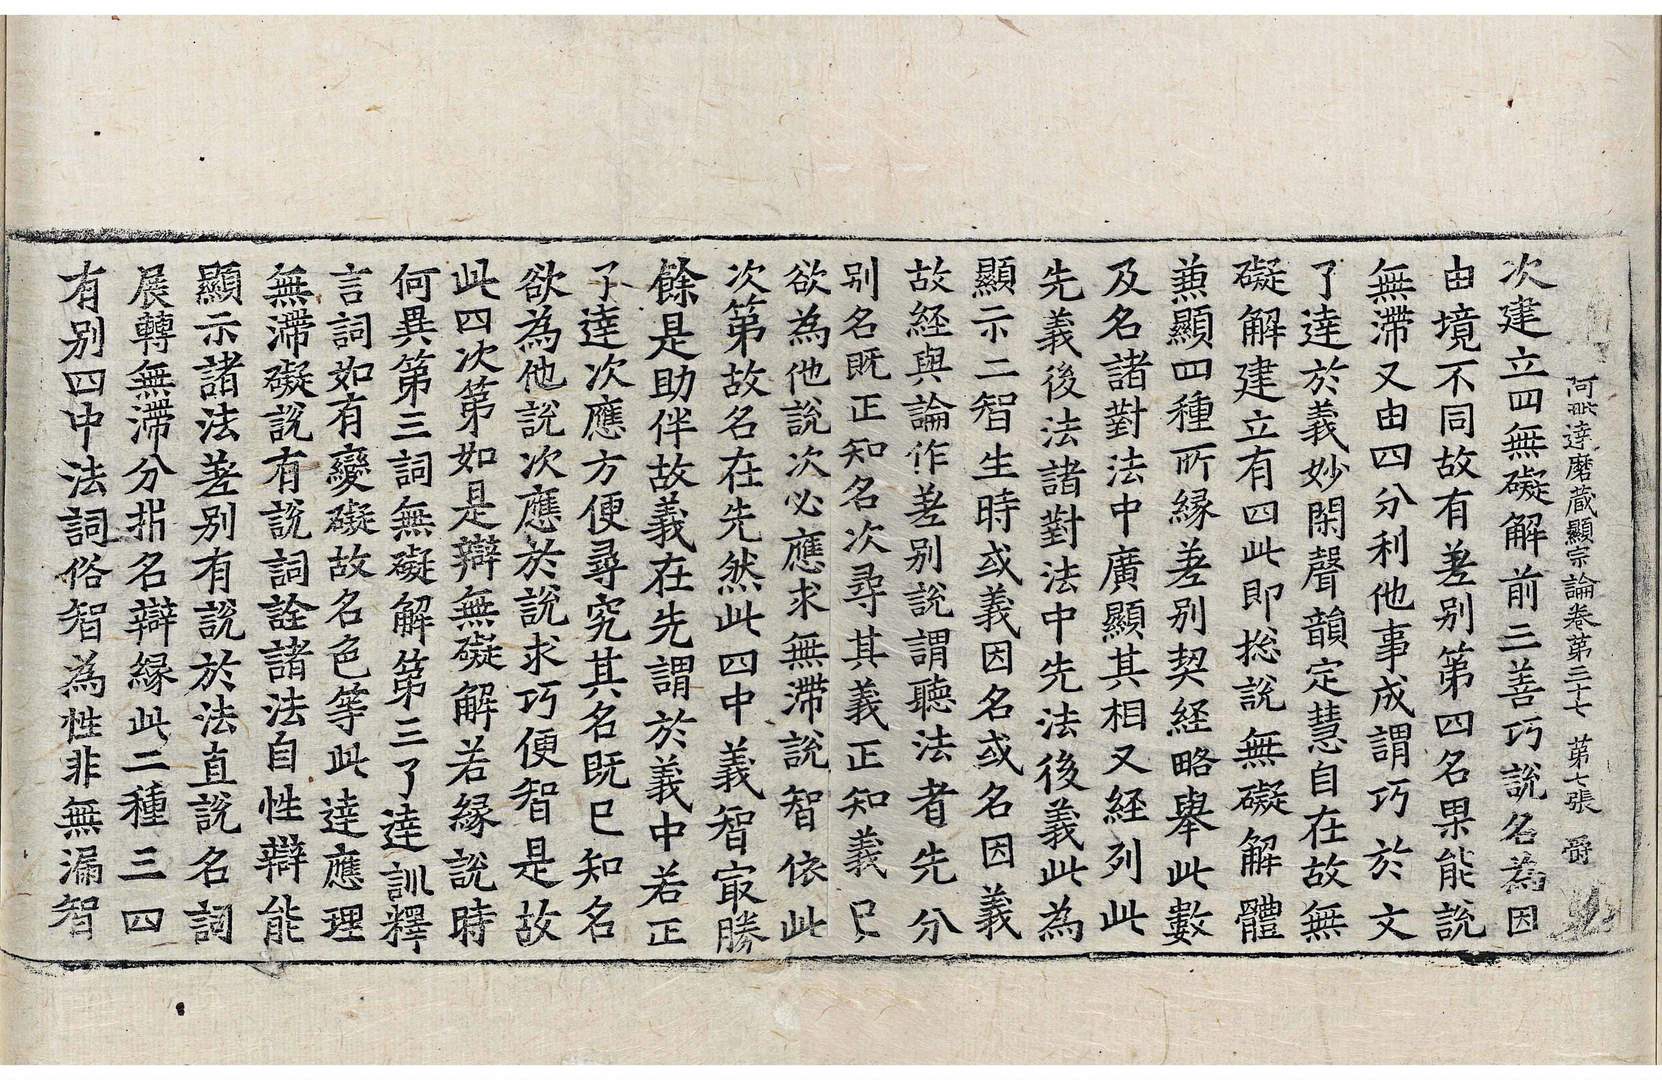 阿毗達磨蔵顯宗論卷第三十七 第七張 爵
次建立四無礙解前三善巧說名為因
由境不同故有差別第四名果能說
無滯又由四分利他事成謂巧於文
了達於義妙閑聲韻定慧自在故無
礙解建立有四此即揔說無礙解體
兼顯四種所緣差別契経略舉此數
及名諸對法中廣顯其相又経列此
先義後法諸對法中先法後義此為
顯示二智生時或義因名或名因義
故経與論作差別說謂聽法者先分
別名既正知名次尋其義正知義已
欲為他說次必應求無滯說智依此
次第故名在先然此四中義智㝡勝
餘是助伴故義在先謂於義中若正
了達次應方便尋究其名既已知名
欲為他說次應於說求巧便智是故
此四次第如是辯無礙解若緣說時
何異第三詞無礙解第三了達訓釋
言詞如有變礙故名色等此達應理
無滯礙說有說詞詮諸法自性辯能
顯示諸法差別有說於法直說名詞
展轉無滯分㧗名辯緣此二種三四
有別四中法詞俗智為性非無漏智